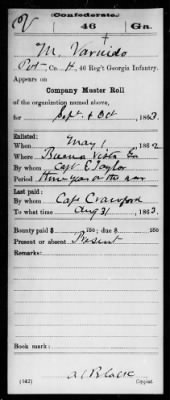 Confederate.
V 46 Ga.
M. Varnido
Pvt, Co. H, 46 Reg't Georgia Infantry.
Appears on
Company Muster Roll
of the organization named above,
for Sept & Oct, 1863.
Enlisted:
When May 1, 1862
Where Buena Vista Ga
By whom Capt E Taylor
Period three years or the war
Last paid:
By whom Capt Crawford
To what time Aug 31, 1863.
Bounty paid $ 100; due $ 100
Present or absent Present
Remarks:
Book mark:
(642)
Copyist.